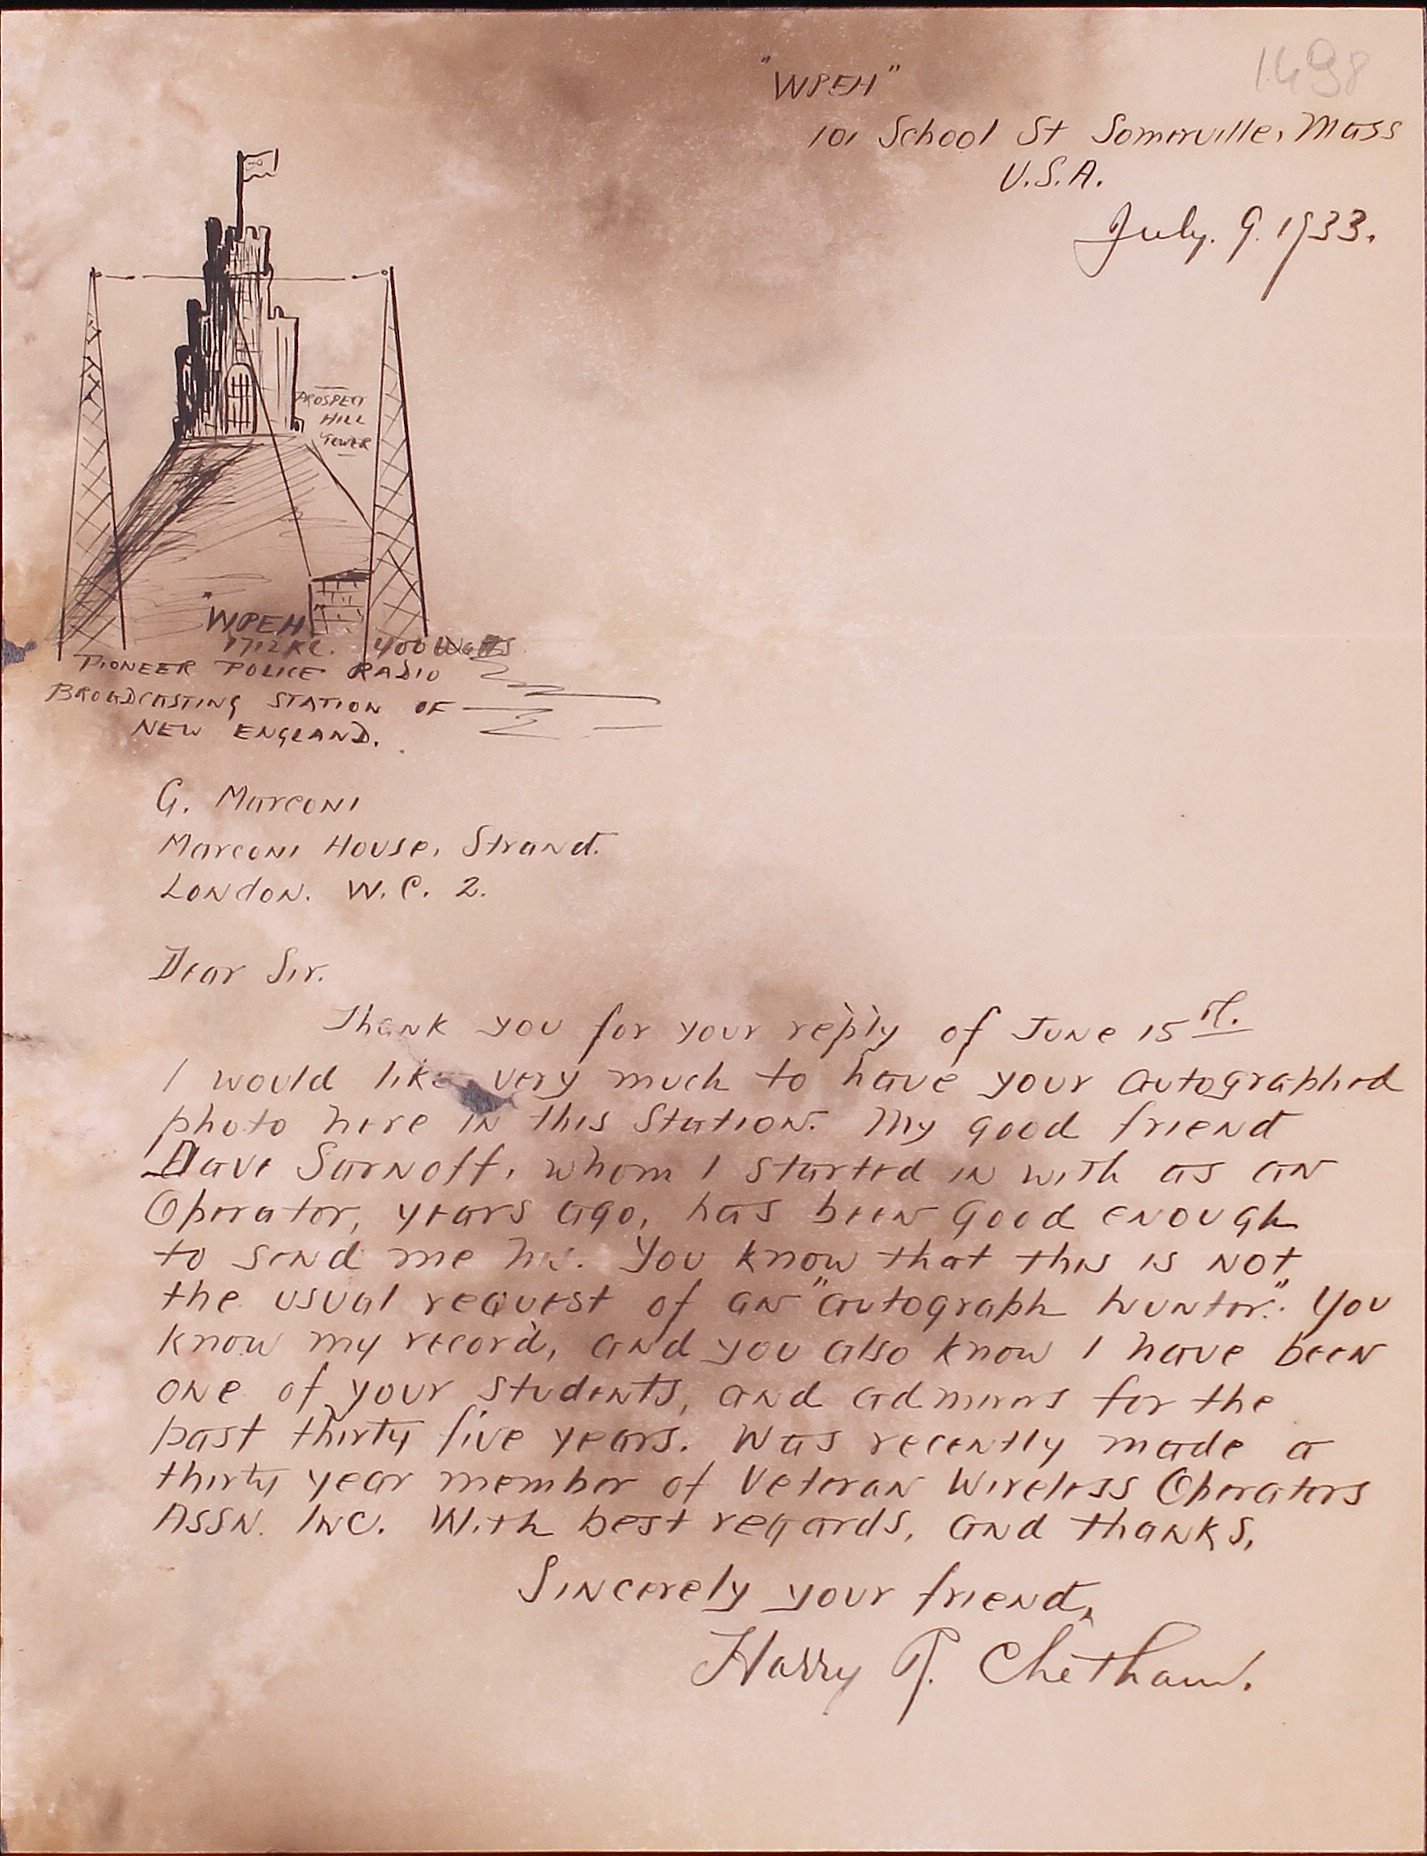 1498
"WPEH"
101 School St Somerville, Mass
U.S.A.
July. 9. 1933.
PROSPECT
HILL
TOWER
"WPEH
1712 KC. 400 Watts
PIONEER POLICE RADIO
BROADCASTING STATION OF
NEW ENGLAND.
G. Marconi
Marconi House, Strand.
London. W.C. 2.
Dear Sir.
Thank you for your reply of June 15st.
I would like very much to have your autographed
photo here in this Station. My good friend
Dave Sarnoff, whom I started in with as an
Operator, years ago, has been good enough
to send me his. You know that this is not
the usual request of an "autograph hunter". You
know my record, and you also know I have been
one of your students, and admirers for the
past thirty five years. Was recently made a
thirty year member of Veteran Wireless Operators
Assn. Inc. With best regards, and thanks,
Sincerely your friend,
Harry A. Chetham.